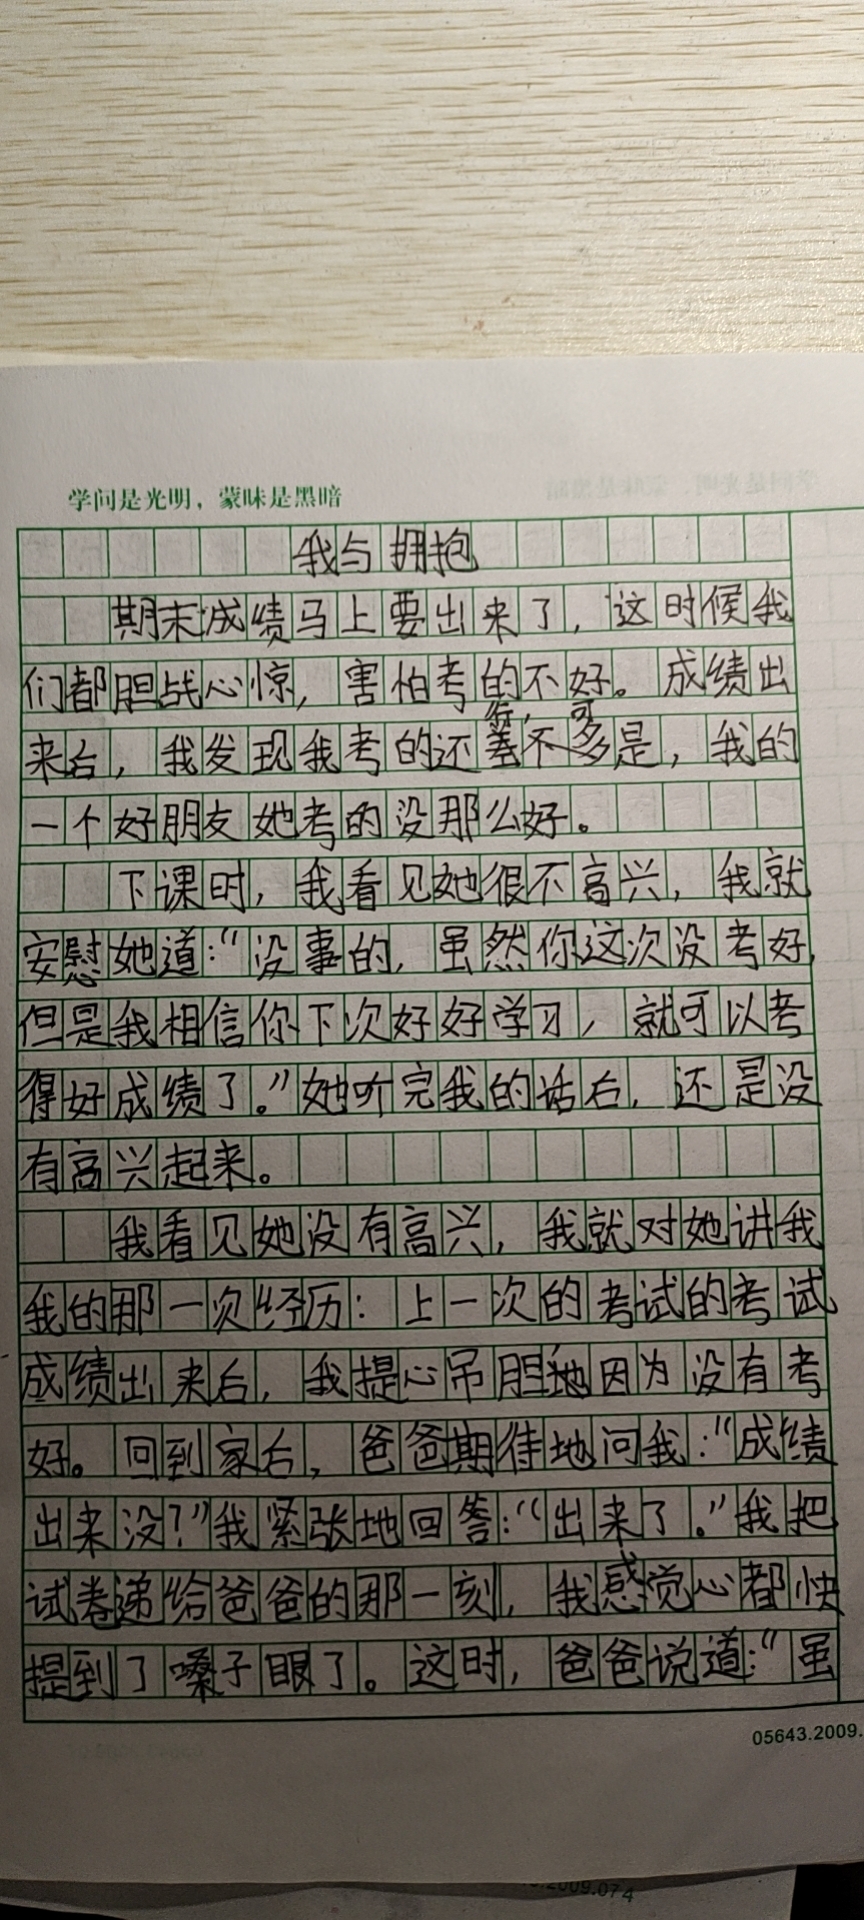 学问是光明，蒙昧是黑暗
我与拥抱
期末成绩马上要出来了，这时候我
们都胆战心惊，害怕考的不好。成绩出
行，可
来后，我发现我考的还差不多是，我的
一个好朋友她考的没那么好。
下课时，我看见她很不高兴，我就
安慰她道：“没事的，虽然你这次没考好，
但是我相信你下次好好学习，就可以考
得好成绩了。”她听完我的话后，还是没
有高兴起来。
我看见她没有高兴，我就对她讲我
我的那一次经历：上一次的考试的考试
成绩出来后，我提心吊胆地因为没有考
好。回到家后，爸爸期待地问我：“成绩
出来没？”我紧张地回答：“出来了。”我把
试卷递给爸爸的那一刻，我感觉心都快
提到了嗓子眼了。这时，爸爸说道：“虽
05643.2009.
.2009.074